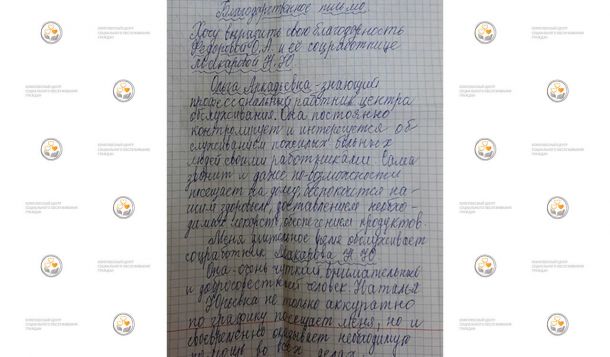 Благодарственное письмо.
Хочу выразить свою благодарность
Федоровой О.А. и её соцработнице
Макаровой Н.Ю.
Ольга Аркадьевна - знающий
профессиональный работник центра
обслуживания. Она постоянно
контролирует и интересуется об
служиванием пожилых больных
людей своими работниками. Сама
звонит и даже по возможности
посещает на дому, беспокоится на-
шим здоровьем, доставлением необхо-
димых лекарств, обеспечением продуктов.
Меня длительное время обслуживает
соцработник Макарова Н.Ю.
Она - очень чуткий внимательный
и добросовестный человек. Наталья
Юрьевна не только аккуратно
по графику посещает меня, но и
своевременно оказывает необходимую
помощь во всех делах